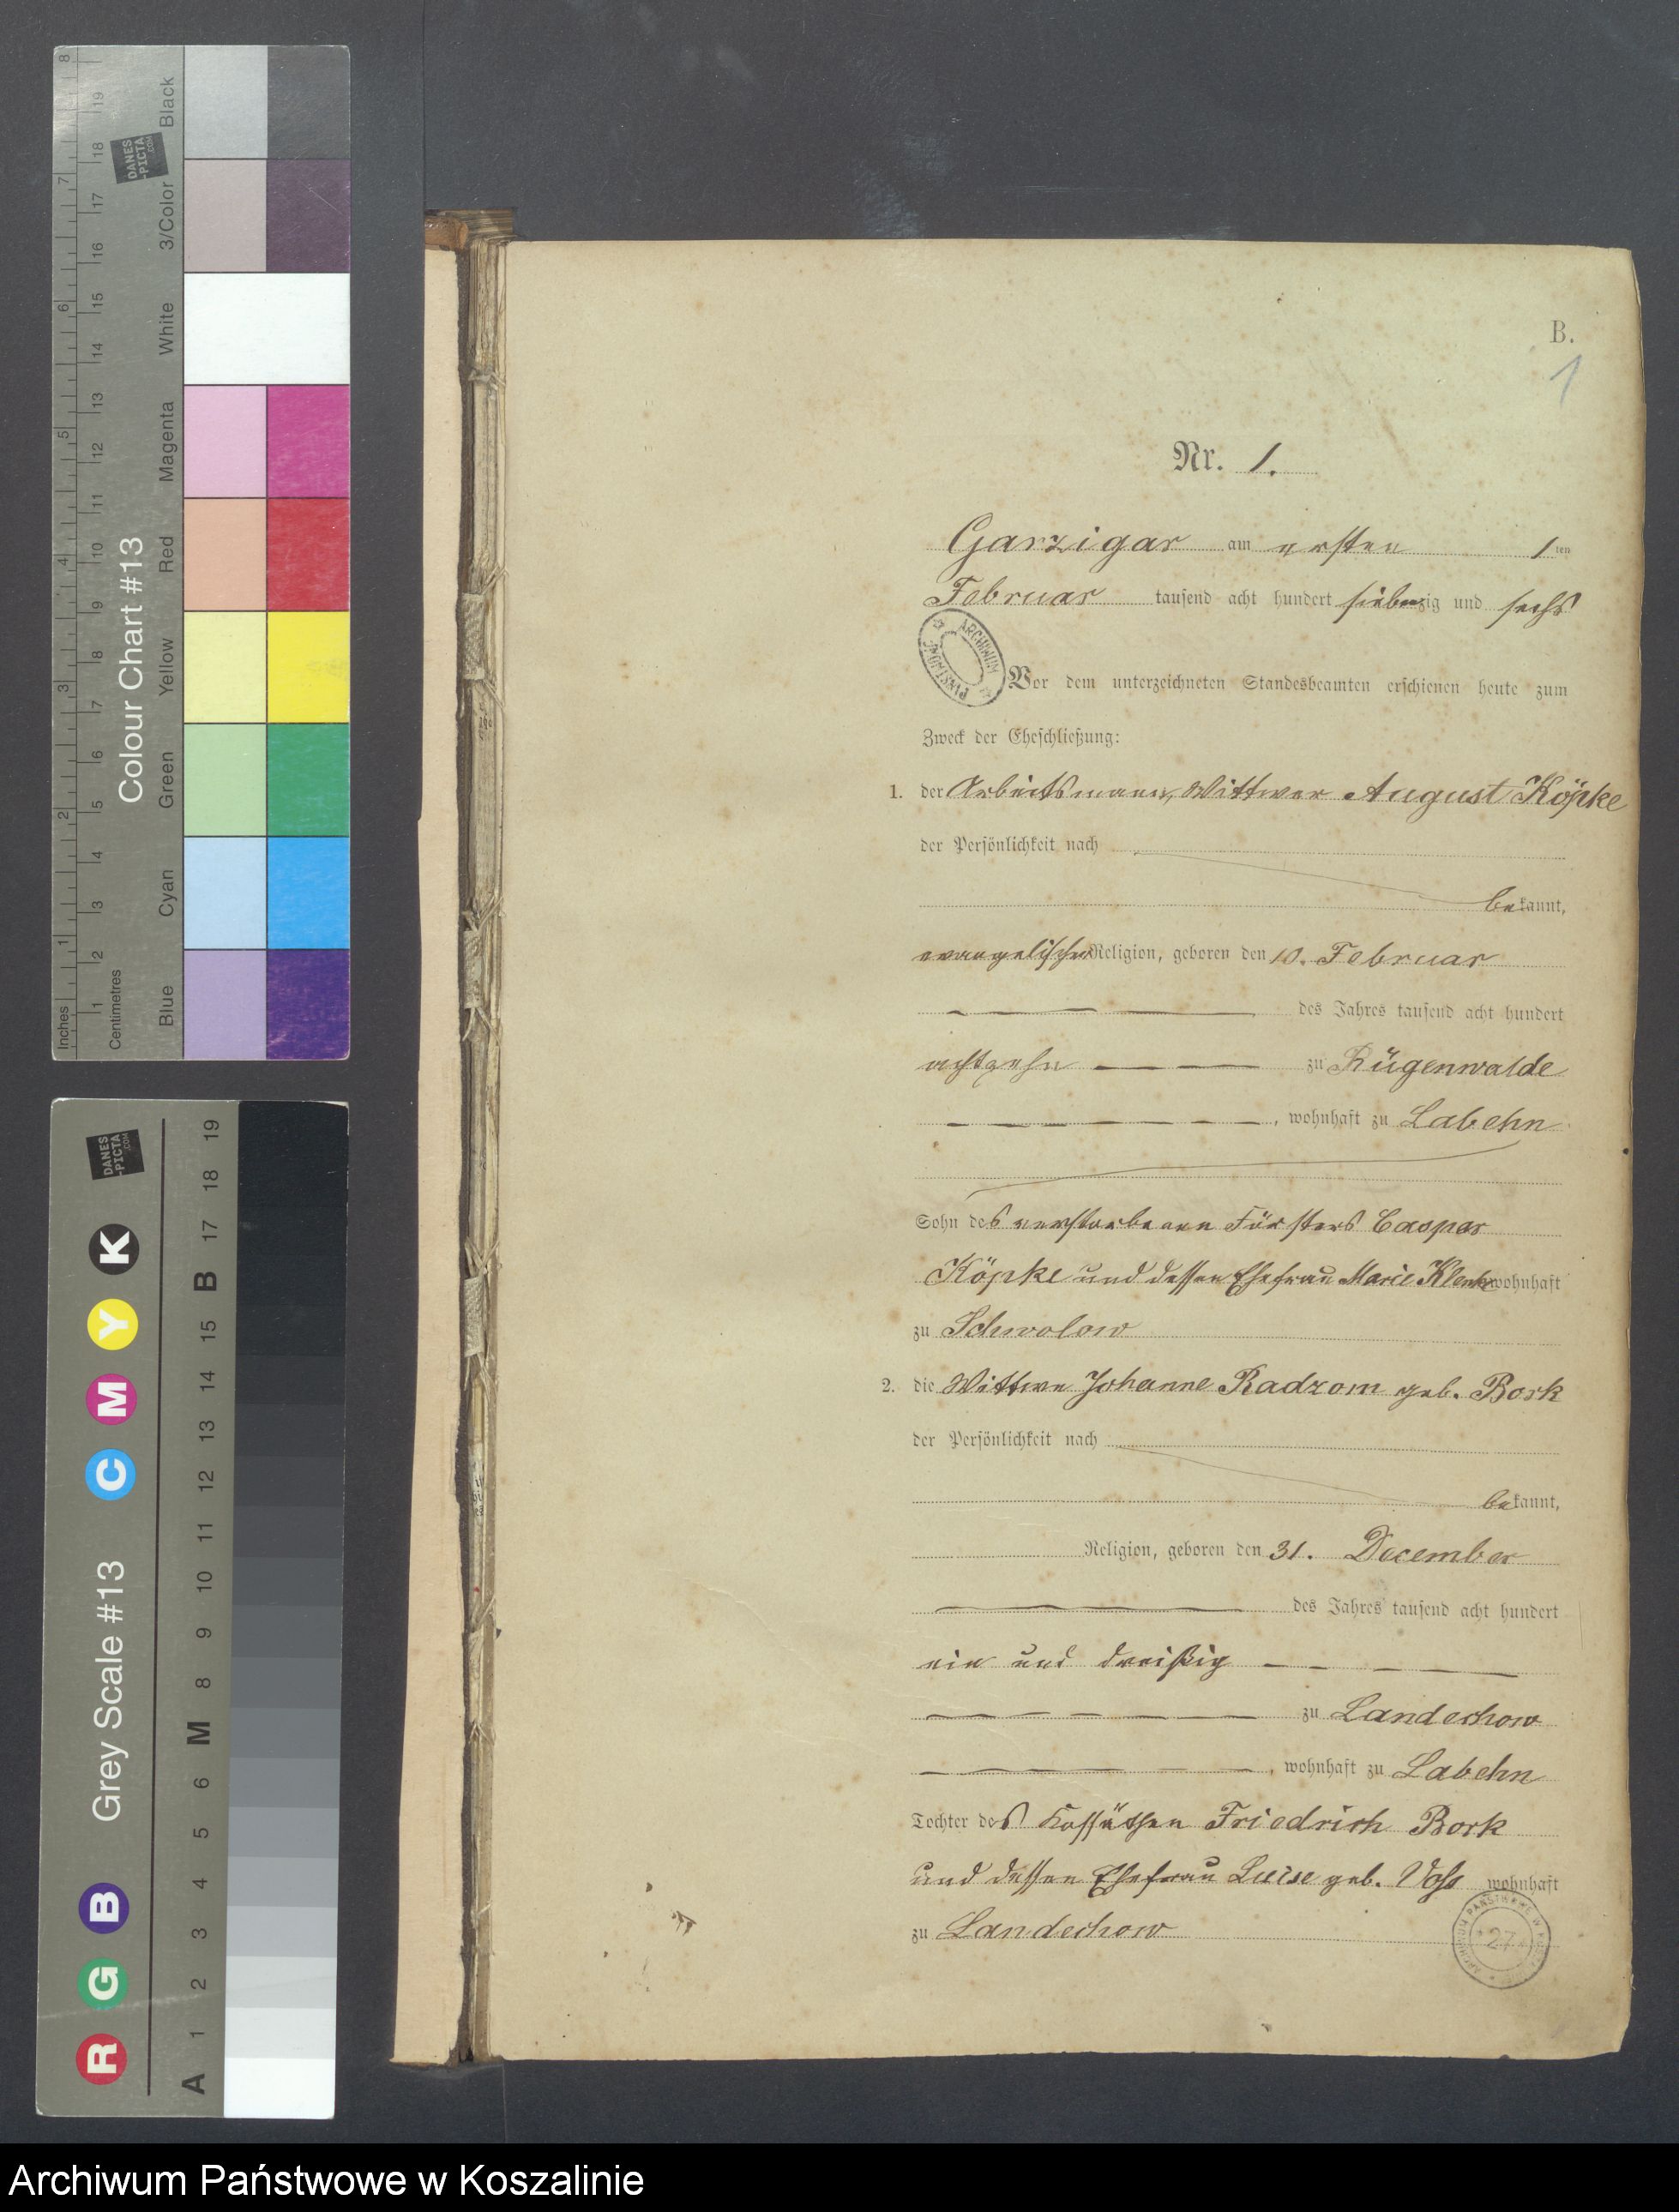 8
19
18
7
17
16
6
15
14
13
5
12
11
4
10
9
3
8
7
6
2
5
4
1
3
2
1
Inches
Centimetres
Colour Chart #13
Black
3/Color
White
Magenta
Red
Yellow
Green
Cyan
Blue
DANES
-PICTA
.COM
DANES
-PICTA
.COM
Grey Scale #13
R G B C M Y K
A 1 2 3 4 5 6 M 8 9 10 11 12 13 14 15 B 17 18 19
B.
1
Nr. 1.
Garzigar am ersten 1ten
Februar tausend acht hundert siebenzig und sechs
ARCHIWUM PAŃSTWOWE
Vor dem unterzeichneten Standesbeamten erschienen heute zum
Zweck der Eheschließung:
1. der Arbeitsmann, Wittwer August Köpke
der Persönlichkeit nach
bekannt,
evangelischer Religion, geboren den 10. Februar
des Jahres tausend acht hundert
achtzehn zu Rügenwalde
, wohnhaft zu Labehn
Sohn des verstorbenen Försters Casper
Köpke und dessen Ehefrau Marie Klenke wohnhaft
zu Schwolow
2. die Wittwe Johanne Radzom geb. Bork
der Persönlichkeit nach
bekannt,
Religion, geboren den 31. December
des Jahres tausend acht hundert
ein und dreißig
zu Landechow
, wohnhaft zu Labehn
Tochter des Kossäthen Friedrich Bork
und dessen Ehefrau Luise geb. Voss wohnhaft
zu Landechow
27
Archiwum Państwowe w Koszalinie